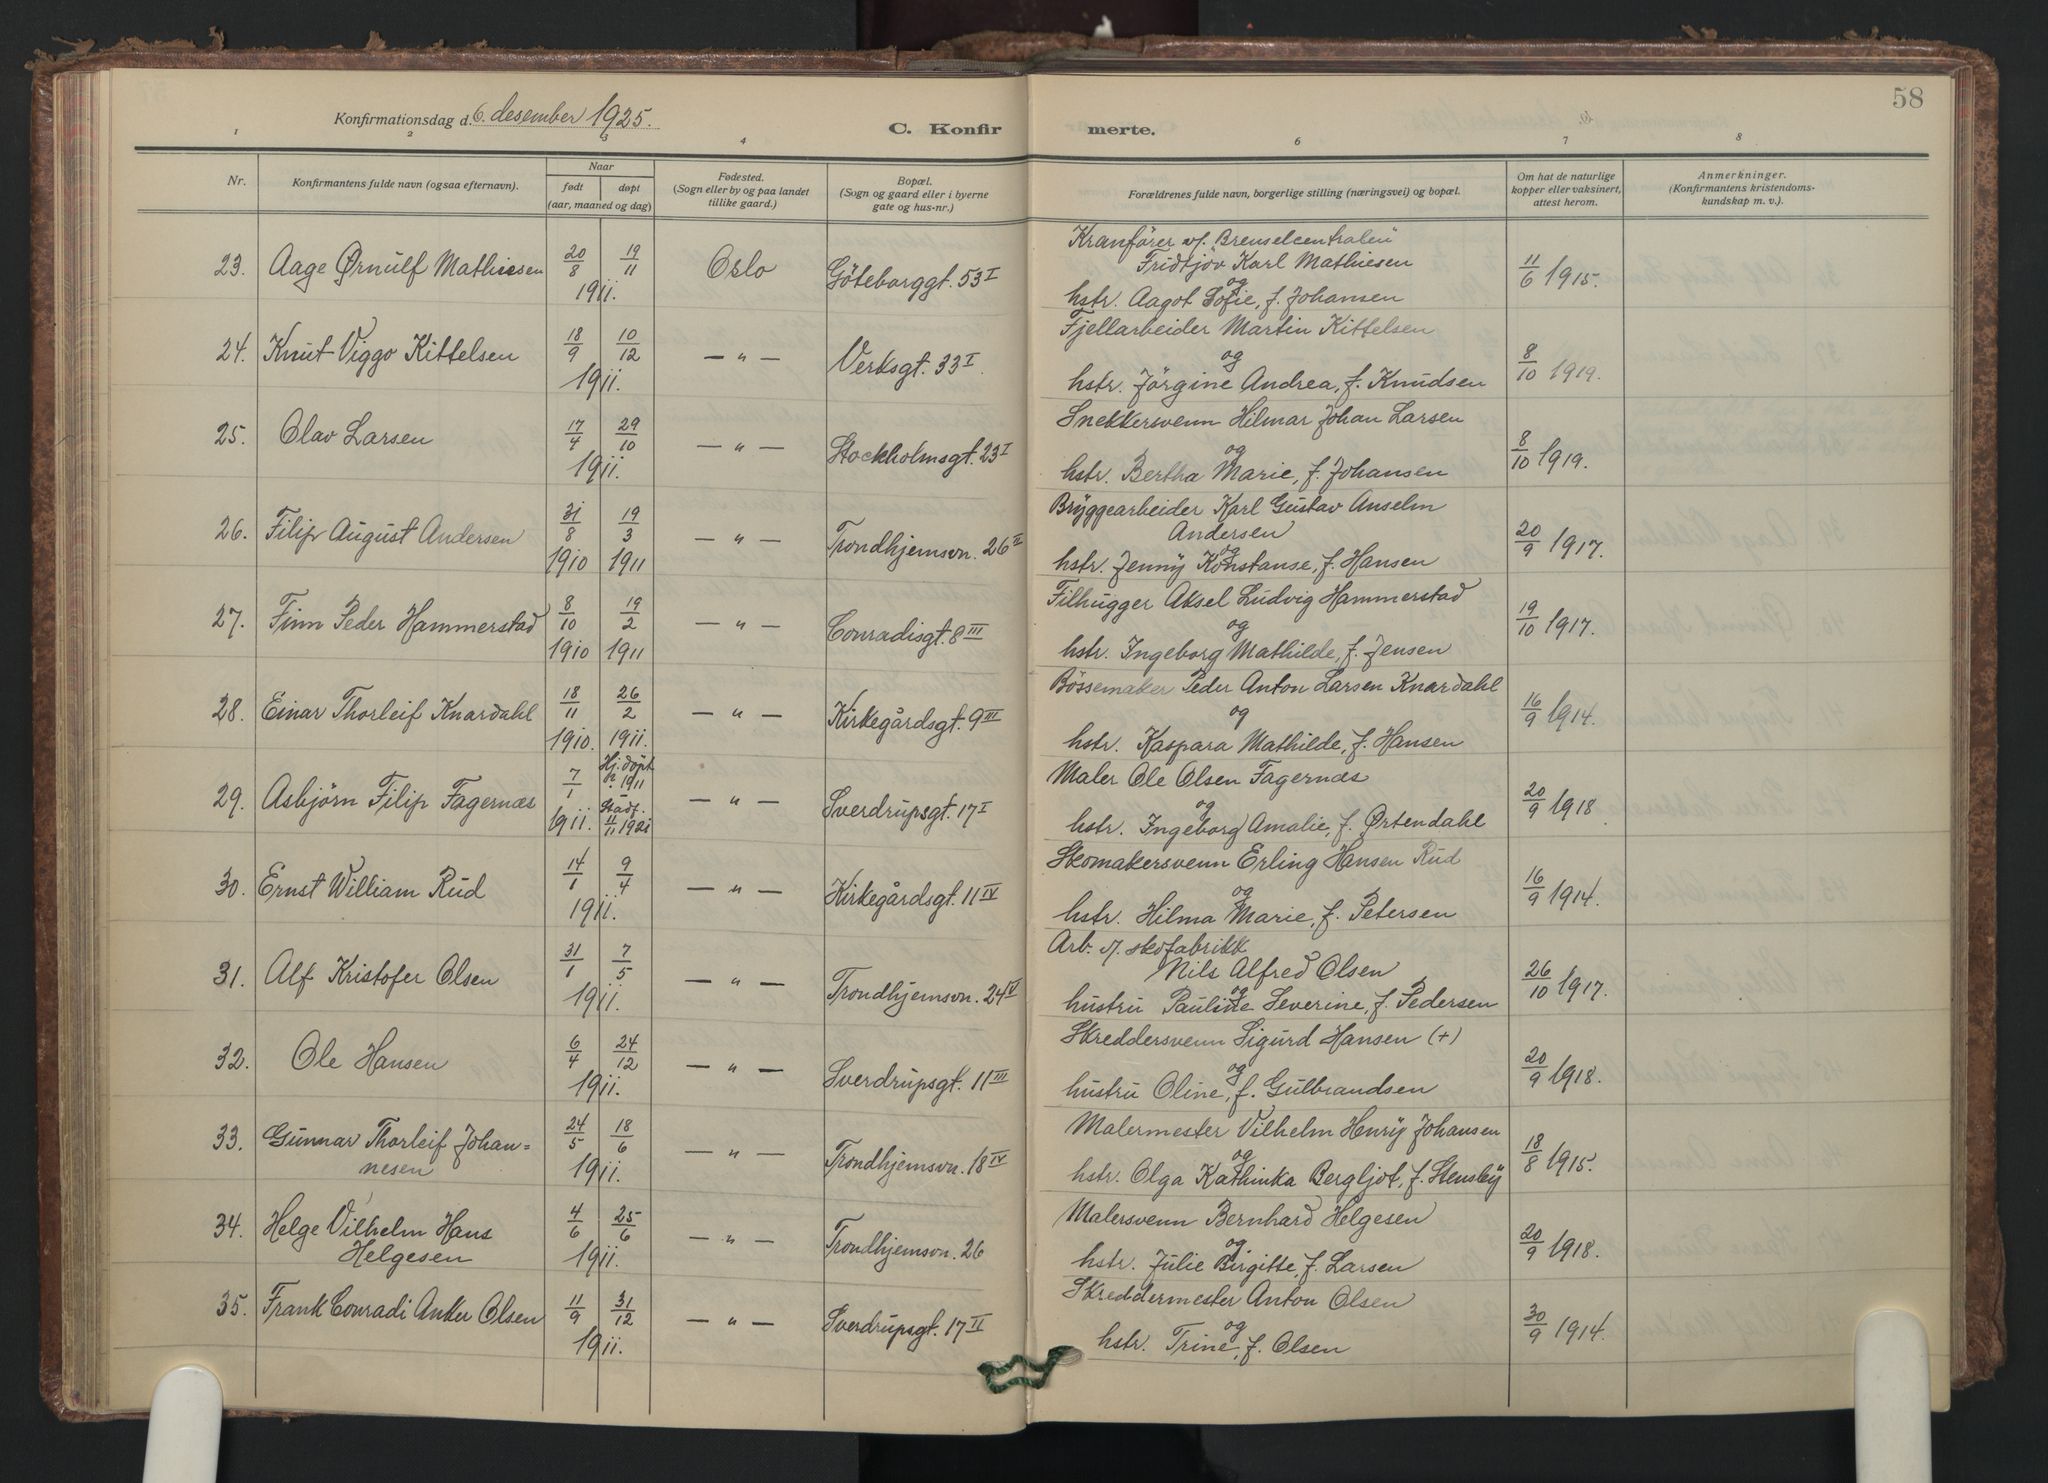 58
Konfirmationsdag d. 6. desember 1925.
C. Konfirmerte.
1 2 3 4 6 7 8
Nr.
Konfirmantens fulde navn (ogsaa efternavn).
Naar
født døpt
(aar, maaned og dag)
Fødested.
(Sogn eller by og paa landet
tillike gaard.)
Bopæl.
(Sogn og gaard eller i byerne
gate og hus-nr.)
Forældrenes fulde navn, borgerlige stilling (næringsvei) og bopæl.
Om hat de naturlige
kopper eller vaksinert,
attest herom.
Anmerkninger.
(Konfirmantens kristendoms-
kundskap m. v.)
23. Aage Ørnulf Mathiesen 20/8 19/11 1911. Oslo Göteborggt. 53 I
Kranfører v/ "Brenselcentralen"
Fridtjöv Karl Mathiesen
og
hstr. Aagot Sofie, f. Johansen
11/6 1915.
24. Knut Viggo Kittelsen 18/9 10/12 1911. — " — Verksgt. 33 I.
Fjellarbeider Martin Kittelsen
og
hstr. Jörgine Andrea, f. Knudsen
8/10 1919.
25. Olav Larsen 17/4 29/10 1911. — " — Stockholmsgt. 23 I
Snekkersvenn Hilmar Johan Larsen
og
hstr. Bertha Marie, f. Johansen
8/10 1919.
26. Filip August Andersen 31/8 1910 19/3 1911 — " — Trondhjemsvn. 26 II
Bryggearbeider Karl Gustav Anselm
Andersen
og
hstr. Jenny Konstanse, f. Hansen
20/9 1917.
27. Finn Peder Hammerstad 8/10 1910 19/2 1911 — " — Conradisgt. 8 III
Filhugger Aksel Ludvig Hammerstad
og
hstr. Ingeborg Mathilde, f. Jensen
19/10 1917.
28. Einar Thorleif Knardahl 18/11 1910. 26/2 1911. — " — Kirkegårdsgt. 9 III
Bössemaker Peder Anton Larsen Knardahl
og
hstr. Kaspara Mathilde, f. Hansen
16/9 1914.
29. Asbjörn Filip Fagernæs 7/1 1911. Hj. døpt 1911 Stadf. 11/11 1921 — " — Sverdrupsgt. 17 I
Maler Ole Olsen Fagernæs
og
hstr. Ingeborg Amalie, f. Ørtendahl
20/9 1918
30. Ernst William Rud 14/1 9/4 1911. — " — Kirkegårdsgt. 11 IV
Skomakersvenn Erling Hansen Rud
og
hstr. Hilma Marie, f. Petersen
16/9 1914.
31. Alf Kristofer Olsen 31/1 7/5 1911. — " — Trondhjemsvn. 24 V
Arb. v/ skofabrikk
Nils Alfred Olsen
og
hustru Pauline Severine, f. Pedersen
26/10 1917.
32. Ole Hansen 6/4 24/12 1911. — " — Sverdrupsgt. 11 III
Skreddersvenn Sigurd Hansen (+)
og
hustru Oline, f. Gulbrandsen
20/9 1918.
33. Gunnar Thorleif Johan-
nesen 24/5 18/6 1911. — " — Trondhjemsvn. 18 IV
Malermester Vilhelm Henry Johansen
og
hstr. Olga Kathinka Bergljot, f. Stensby
18/8 1915.
34. Helge Vilhelm Hans
Helgesen 4/6 25/6 1911. — " — Trondhjemsvn. 26
Malersvenn Bernhard Helgesen
og
hstr. Julie Birgitte, f. Larsen
20/9 1918.
35. Frank Conradi Anker Olsen 11/9 31/12 1911. — " — Sverdrupsgt. 17 II
Skreddermester Anton Olsen
og
hstr. Trine, f. Olsen
30/9 1914.